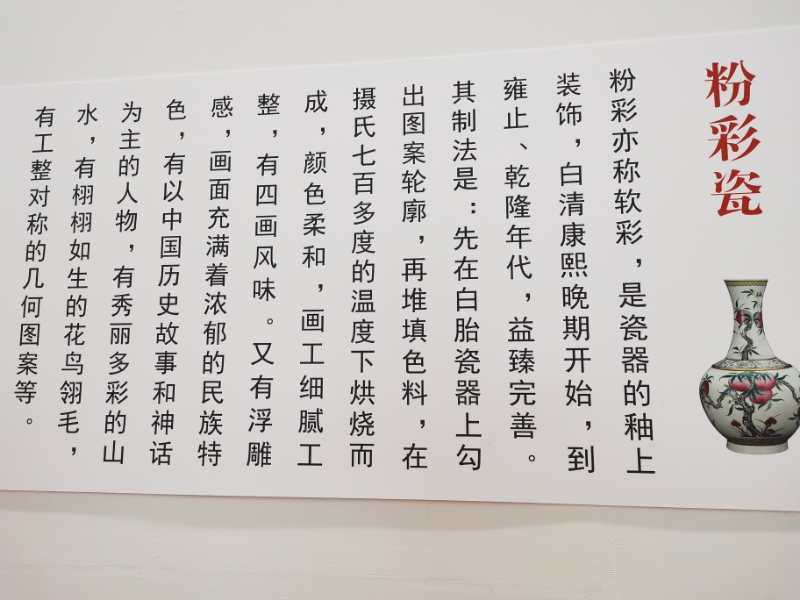 粉彩瓷
粉彩亦称软彩，是瓷器的釉上
装饰，白清康熙晚期开始，到
雍止、乾隆年代，益臻完善。
其制法是：先在白胎瓷器上勾
出图案轮廓，再堆填色料，在
摄氏七百多度的温度下烘烧而
成，颜色柔和，画工细腻工
整，有四画风味。又有浮雕
感，画面充满着浓郁的民族特
色，有以中国历史故事和神话
为主的人物，有秀丽多彩的山
水，有栩栩如生的花鸟翎毛，
有工整对称的几何图案等。